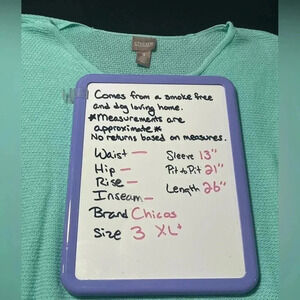 chico's
Comes from a smoke free
and dog loving home.
*Measurements are
approximate*
No returns based on measures.
Waist —
Hip —
Rise —
Inseam —
Brand Chicos
Size 3 XL+
Sleeve 13"
Pit to Pit 21"
Length 26"